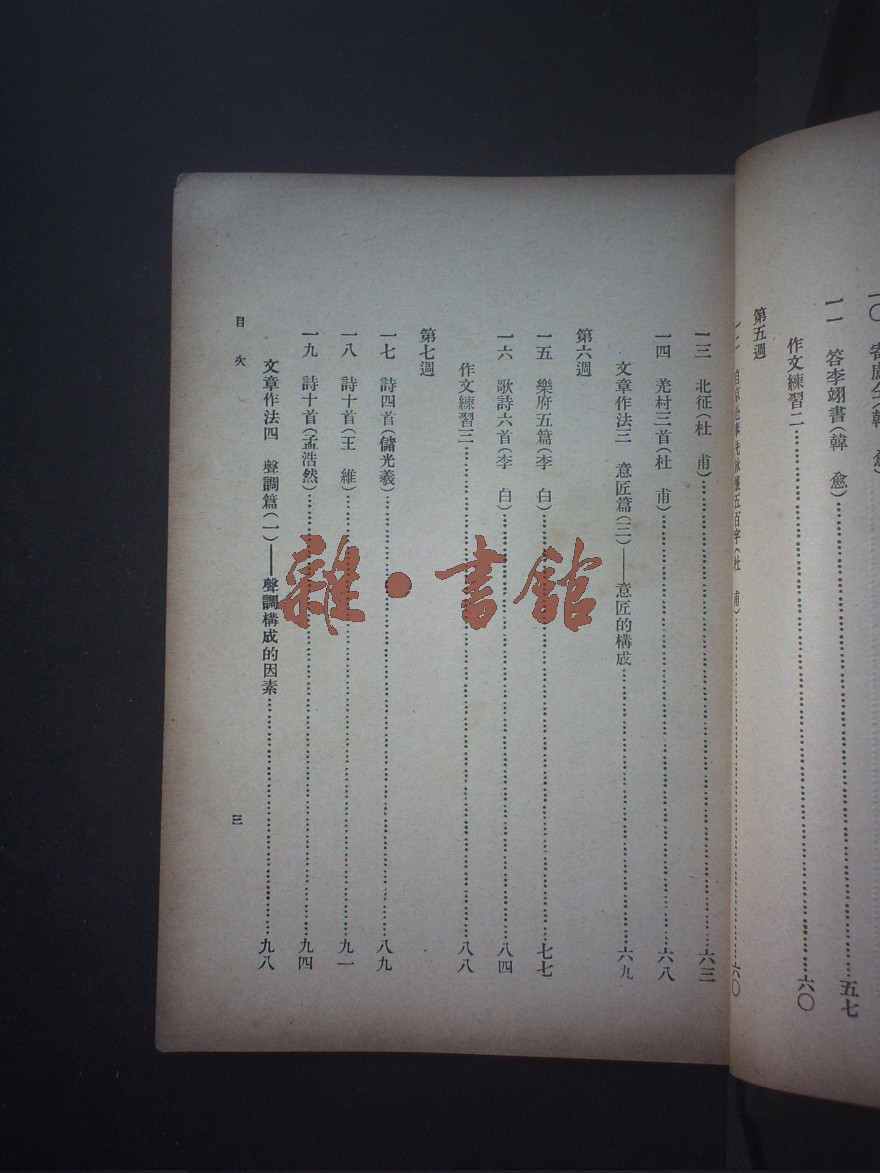 一〇
一一　答李翊書(韓　愈)……五七
作文練習二……六〇
第五週
五百字(杜　甫)……六〇
一三　北征(杜　甫)……六三
一四　羌村三首(杜　甫)……六八
文章作法三　意匠篇(三)——意匠的構成……六九
第六週
一五　樂府五篇(李　白)……七七
一六　歌詩六首(李　白)……八四
作文練習三……八八
第七週
一七　詩四首(儲光羲)……八九
一八　詩十首(王　維)……九一
一九　詩十首(孟浩然)……九四
文章作法四　聲調篇(一)——聲調構成的因素……九八
目　次
三
雜·書館